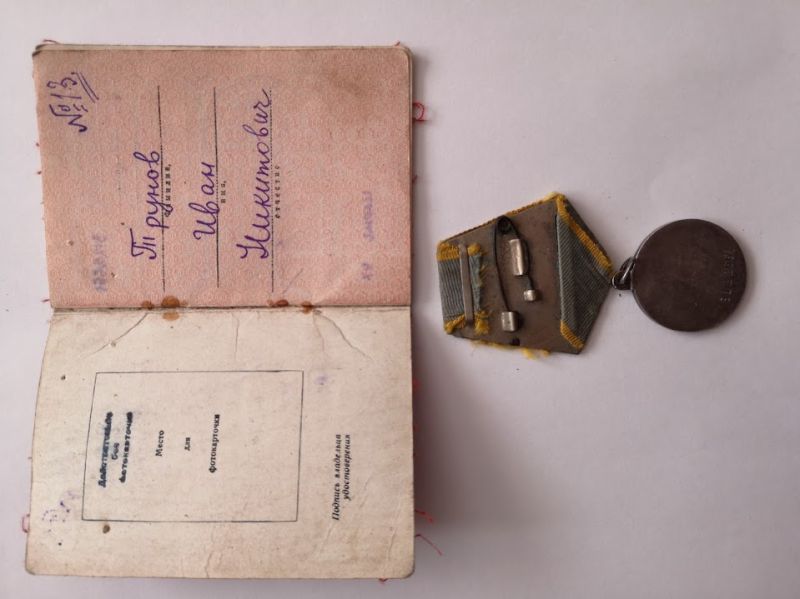 № 13.
Трунов
фамилия,
Иван
имя,
Никитович
отчество
Действительно
без
фотокарточки
Место
для
фотокарточки
Подпись владельца
удостоверения